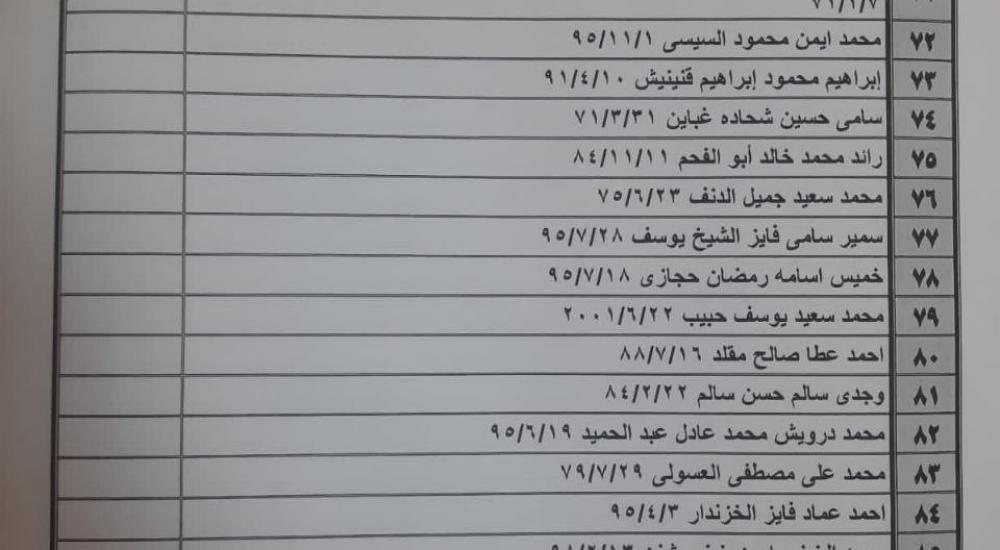 ٧١/١/٧
٧٢ محمد ايمن محمود السيسى ٩٥/١١/١
٧٣ إبراهيم محمود إبراهيم قنينيش ٩١/٤/١٠
٧٤ سامى حسين شحاده غباين ٧١/٣/٣١
٧٥ رائد محمد خالد أبو الفحم ٨٤/١١/١١
٧٦ محمد سعيد جميل الدنف ٧٥/٦/٢٣
٧٧ سمير سامى فايز الشيخ يوسف ٩٥/٧/٢٨
٧٨ خميس اسامه رمضان حجازى ٩٥/٧/١٨
٧٩ محمد سعيد يوسف حبيب ٢٠٠١/٦/٢٢
٨٠ احمد عطا صالح مقلد ٨٨/٧/١٦
٨١ وجدى سالم حسن سالم ٨٤/٢/٢٢
٨٢ محمد درويش محمد عادل عبد الحميد ٩٥/٦/١٩
٨٣ محمد على مصطفى العسولى ٧٩/٧/٢٩
٨٤ احمد عماد فايز الخزندار ٩٥/٤/٣